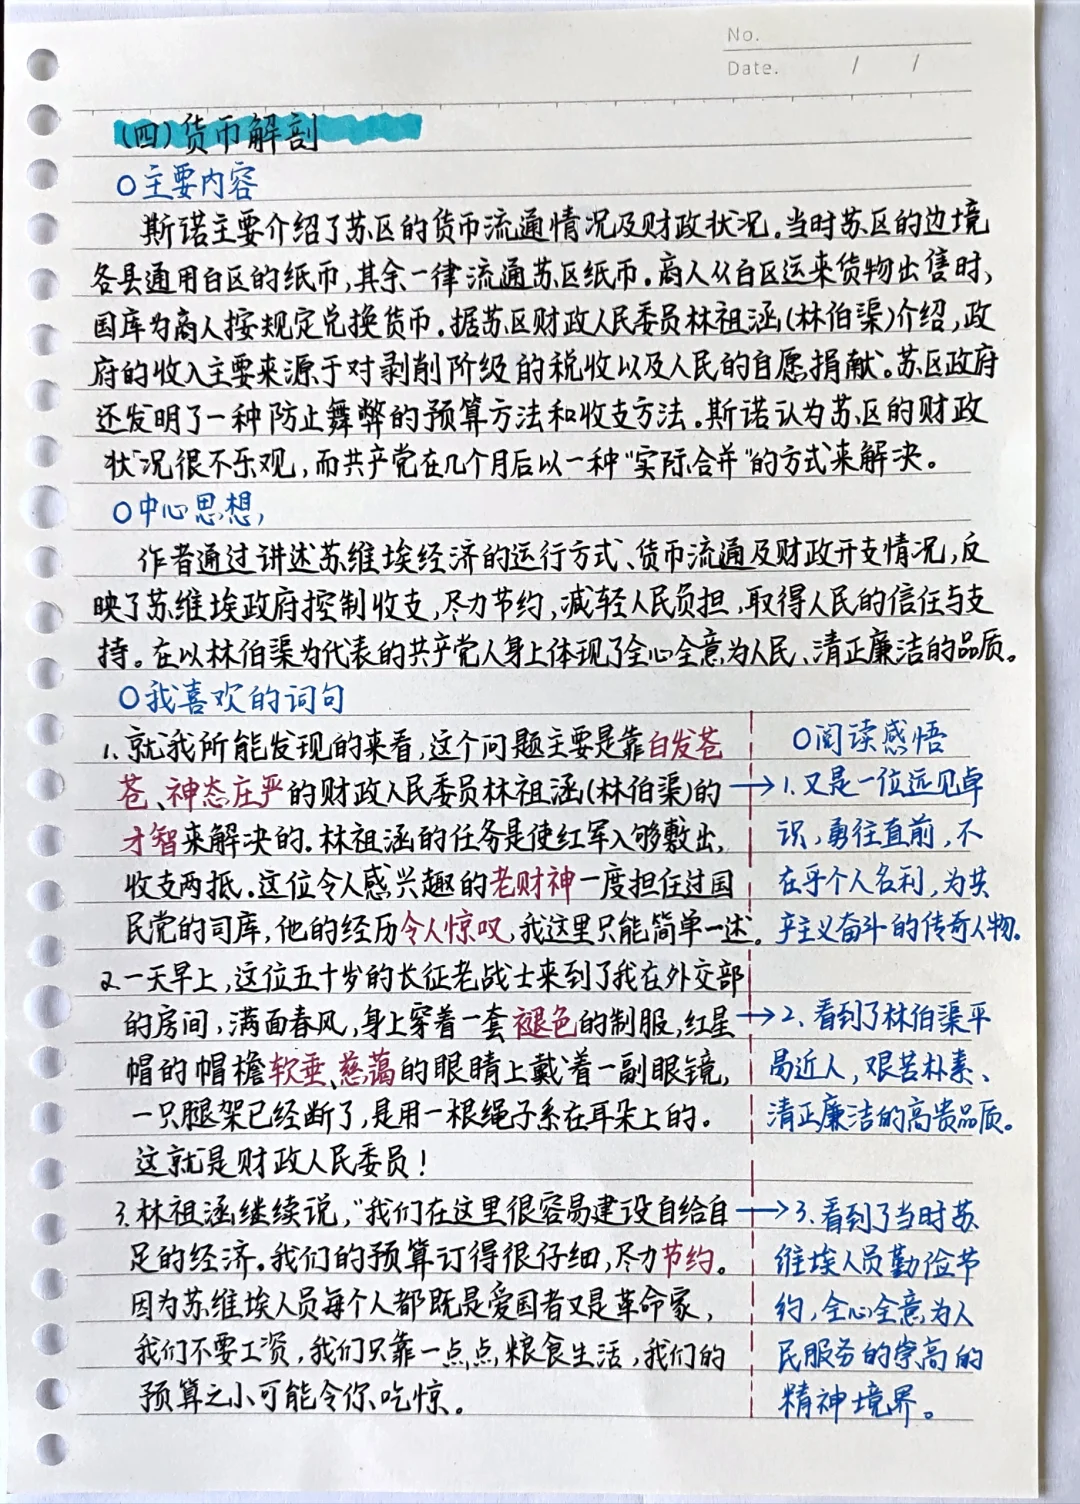 No.
Date. / /
(四)货币解剖
○主要内容
斯诺主要介绍了苏区的货币流通情况及财政状况。当时苏区的边境
各县通用白区的纸币,其余一律流通苏区纸币。商人从白区运来货物出售时,
国库为商人按规定兑换货币。据苏区财政人民委员林祖涵(林伯渠)介绍,政
府的收入主要来源于对剥削阶级的税收以及人民的自愿捐献。苏区政府
还发明了一种防止舞弊的预算方法和收支方法。斯诺认为苏区的财政
状况很不乐观,而共产党在几个月后以一种“实际合并”的方式来解决。
○中心思想,
作者通过讲述苏维埃经济的运行方式、货币流通及财政开支情况,反
映了苏维埃政府控制收支,尽力节约,减轻人民负担,取得人民的信任与支
持。在以林伯渠为代表的共产党人身上体现了全心全意为人民、清正廉洁的品质。
○我喜欢的词句
1.就我所能发现的来看,这个问题主要是靠白发苍
苍、神态庄严的财政人民委员林祖涵(林伯渠)的
才智来解决的.林祖涵的任务是使红军入够敷出,
收支两抵.这位令人感兴趣的老财神一度担任过国
民党的司库,他的经历令人惊叹,我这里只能简单一述。
2.一天早上,这位五十岁的长征老战士来到了我在外交部
的房间,满面春风,身上穿着一套褪色的制服,红星
帽的帽檐软垂、慈蔼的眼睛上戴着一副眼镜,
一只腿架已经断了,是用一根绳子系在耳朵上的。
这就是财政人民委员!
3.林祖涵继续说,“我们在这里很容易建设自给自
足的经济。我们的预算订得很仔细,尽力节约。
因为苏维埃人员每个人都既是爱国者又是革命家,
我们不要工资,我们只靠一点点粮食生活,我们的
预算之小可能令你吃惊。
○阅读感悟
→1.又是一位远见卓
识,勇往直前,不
在乎个人名利,为共
产主义奋斗的传奇人物.
→2.看到了林伯渠平
易近人,艰苦朴素、
清正廉洁的高贵品质。
→3.看到了当时苏
维埃人员勤俭节
约,全心全意为人
民服务的崇高的
精神境界。